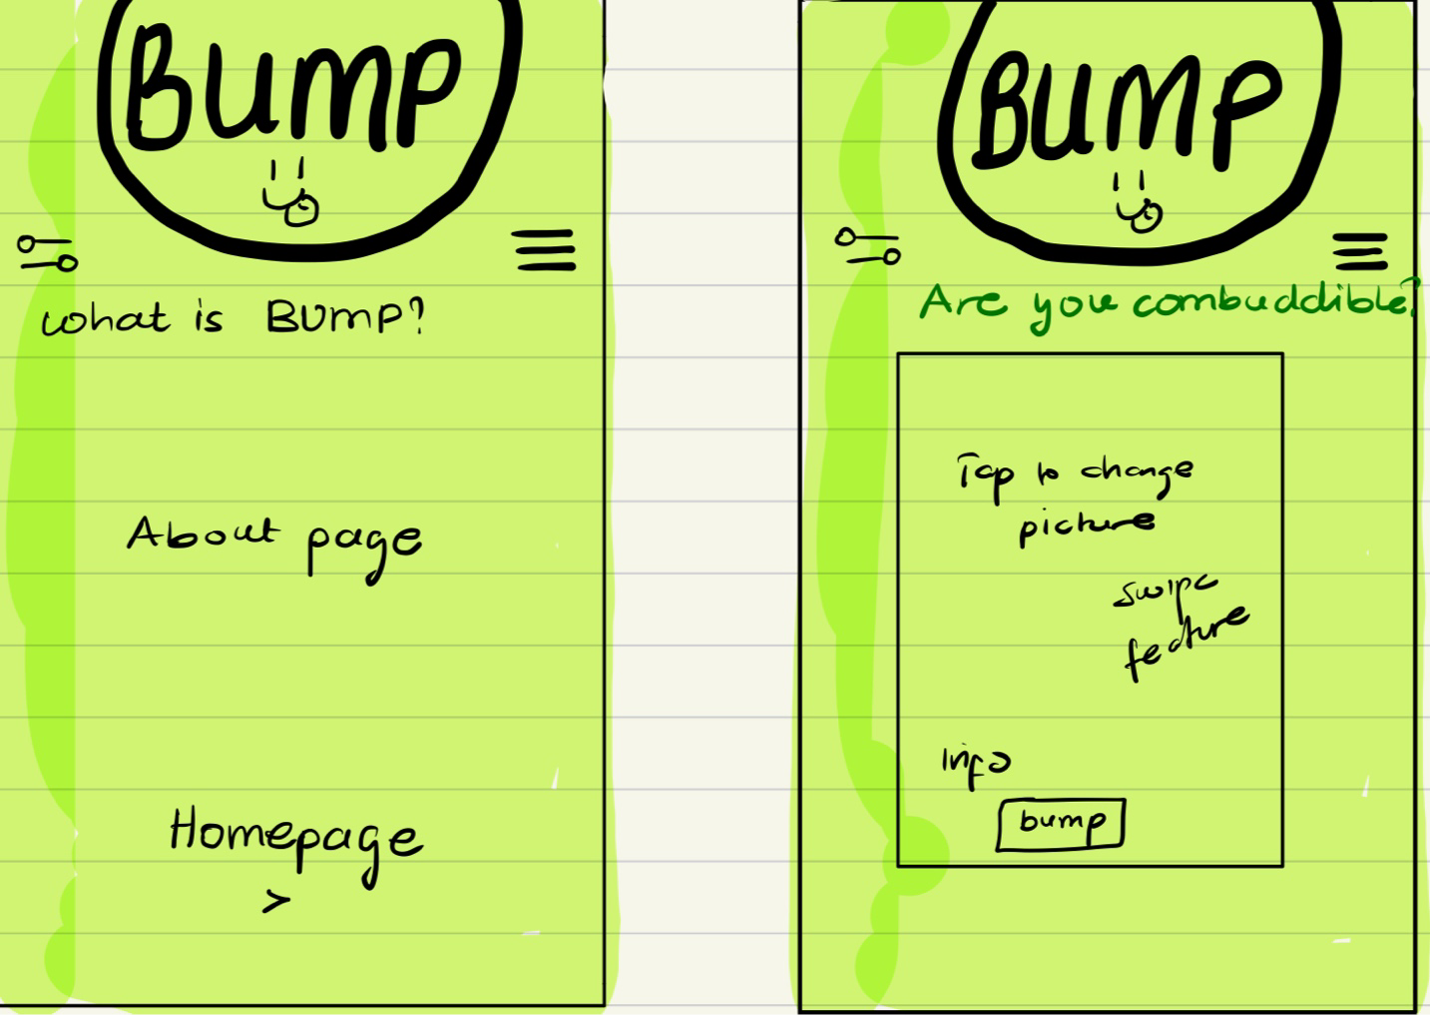 BUMP
what is BUMP?
About page
Homepage
>
BUMP
Are you combuddible?
Tap to change
picture
swipe
feature
Info
bump